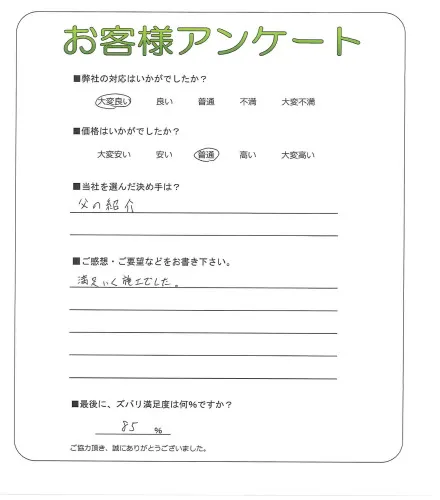 お客様アンケート
■弊社の対応はいかがでしたか？
大変良い 良い 普通 不満 大変不満
■価格はいかがでしたか？
大変安い 安い 普通 高い 大変高い
■当社を選んだ決め手は？
父の紹介
■ご感想・ご要望などをお書き下さい。
満足いく施工でした。
■最後に、ズバリ満足度は何%ですか？
85 %
ご協力頂き、誠にありがとうございました。